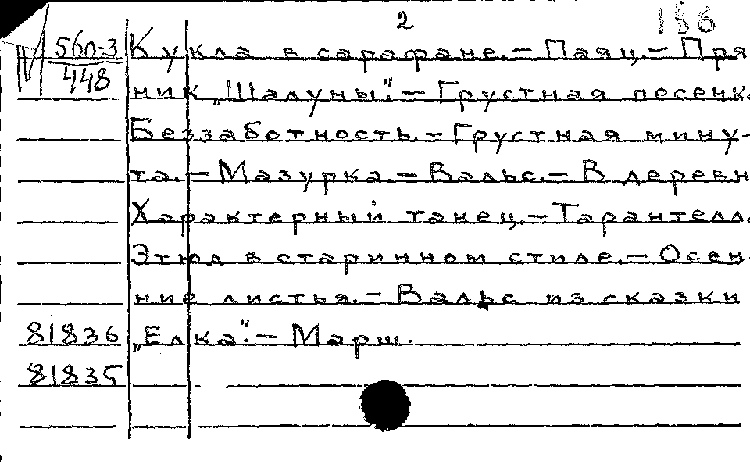 2 156
560-3 Кукла в сарафане.- Паяц.- Пря
448 ник „Шалуны".- Грустная песенка
Беззаботность.- Грустная мину-
та.- Мазурка.- Вальс.- В деревн
Характерный танец.- Тарантелла
Этюд в старинном стиле.- Осен-
ние листья.- Вальс из сказки
81836 „Елка".- Марш.
81835